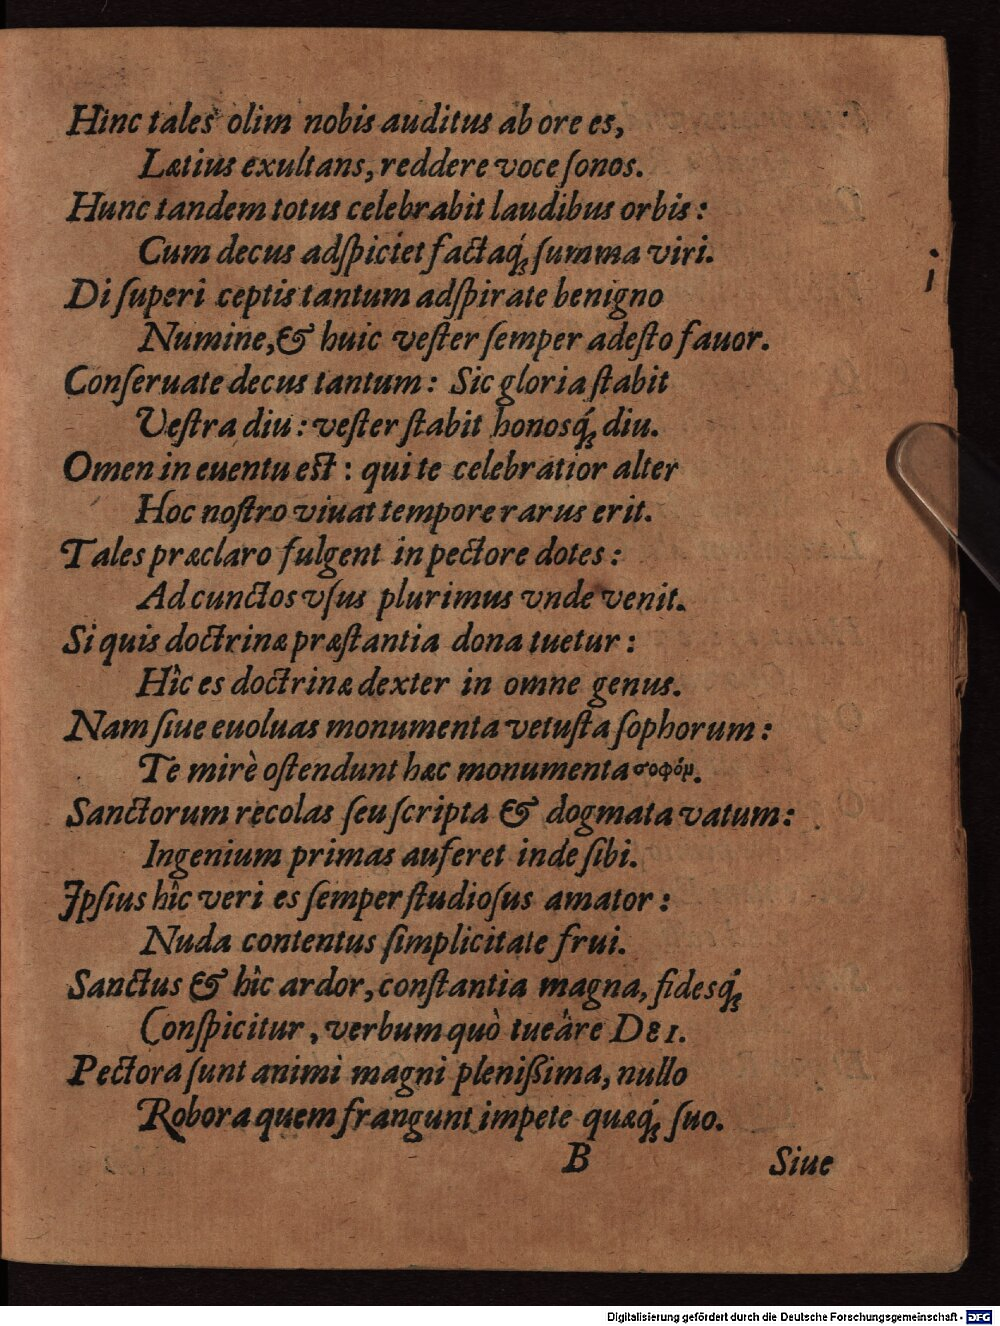 Hinc tales olim nobis auditus ab ore es,
Lætius exultans, reddere voce ſonos.
Hunc tandem totus celebrabit laudibus orbis:
Cum decus adſpiciet factaq́; ſumma viri.
Di ſuperi ceptis tantum adſpirate benigno
Numine, & huic veſter ſemper adeſto fauor.
Conſeruate decus tantum: Sic gloria ſtabit
Veſtra diu: veſter ſtabit honosq́; diu.
Omen in euentu est: qui te celebratior alter
Hoc noſtro viuat tempore rarus erit.
Tales præclaro fulgent in pectore dotes:
Ad cunctos vſus plurimus vnde venit.
Si quis doctrinæ præſtantia dona tuetur:
Hîc es doctrinæ dexter in omne genus.
Nam ſiue euoluas monumenta vetuſta ſophorum:
Te mirè oſtendunt hæc monumenta σοφόμ.
Sanctorum recolas ſeu ſcripta & dogmata vatum:
Ingenium primas auferet inde ſibi.
Ipſius hîc veri es ſemper ſtudioſus amator:
Nuda contentus ſimplicitate frui.
Sanctus & hîc ardor, conſtantia magna, fidesq́;
Conſpicitur, verbum quò tueâre DEI.
Pectora ſunt animi magni pleniſſima, nullo
Robora quem frangunt impete quæq́; ſuo.
B Siue
Digitalisierung gefördert durch die Deutsche Forschungsgemeinschaft - DFG